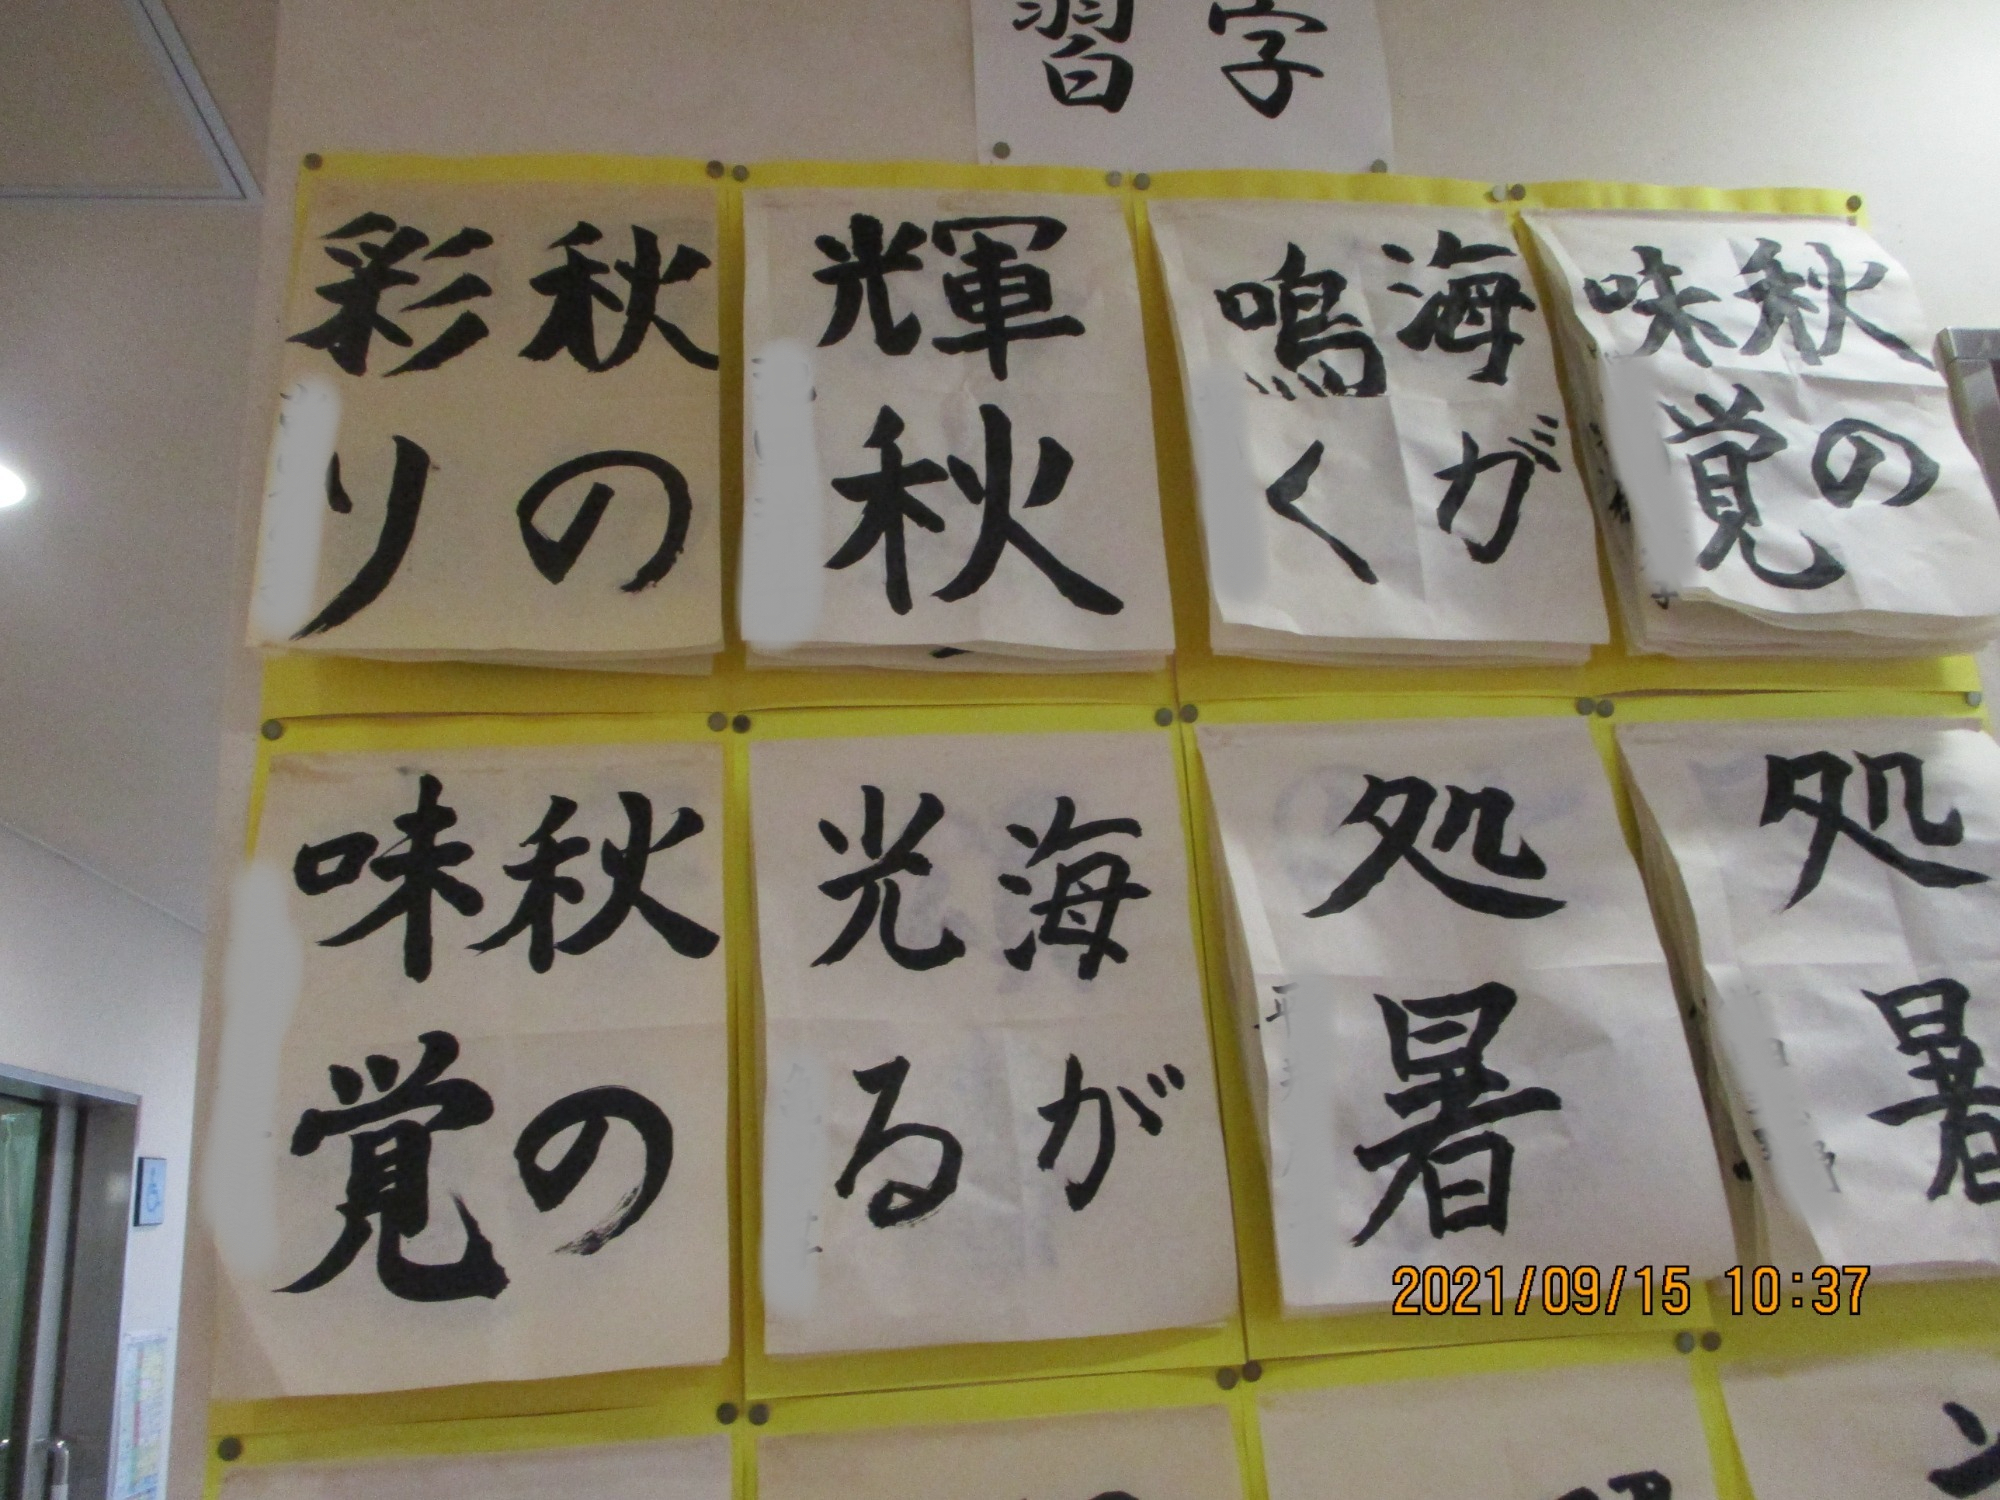 習字
秋の
彩り
輝秋
海が
鳴く
秋の
味覚
秋の
味覚
海が
光る
処暑
処暑
2021/09/15 10:37